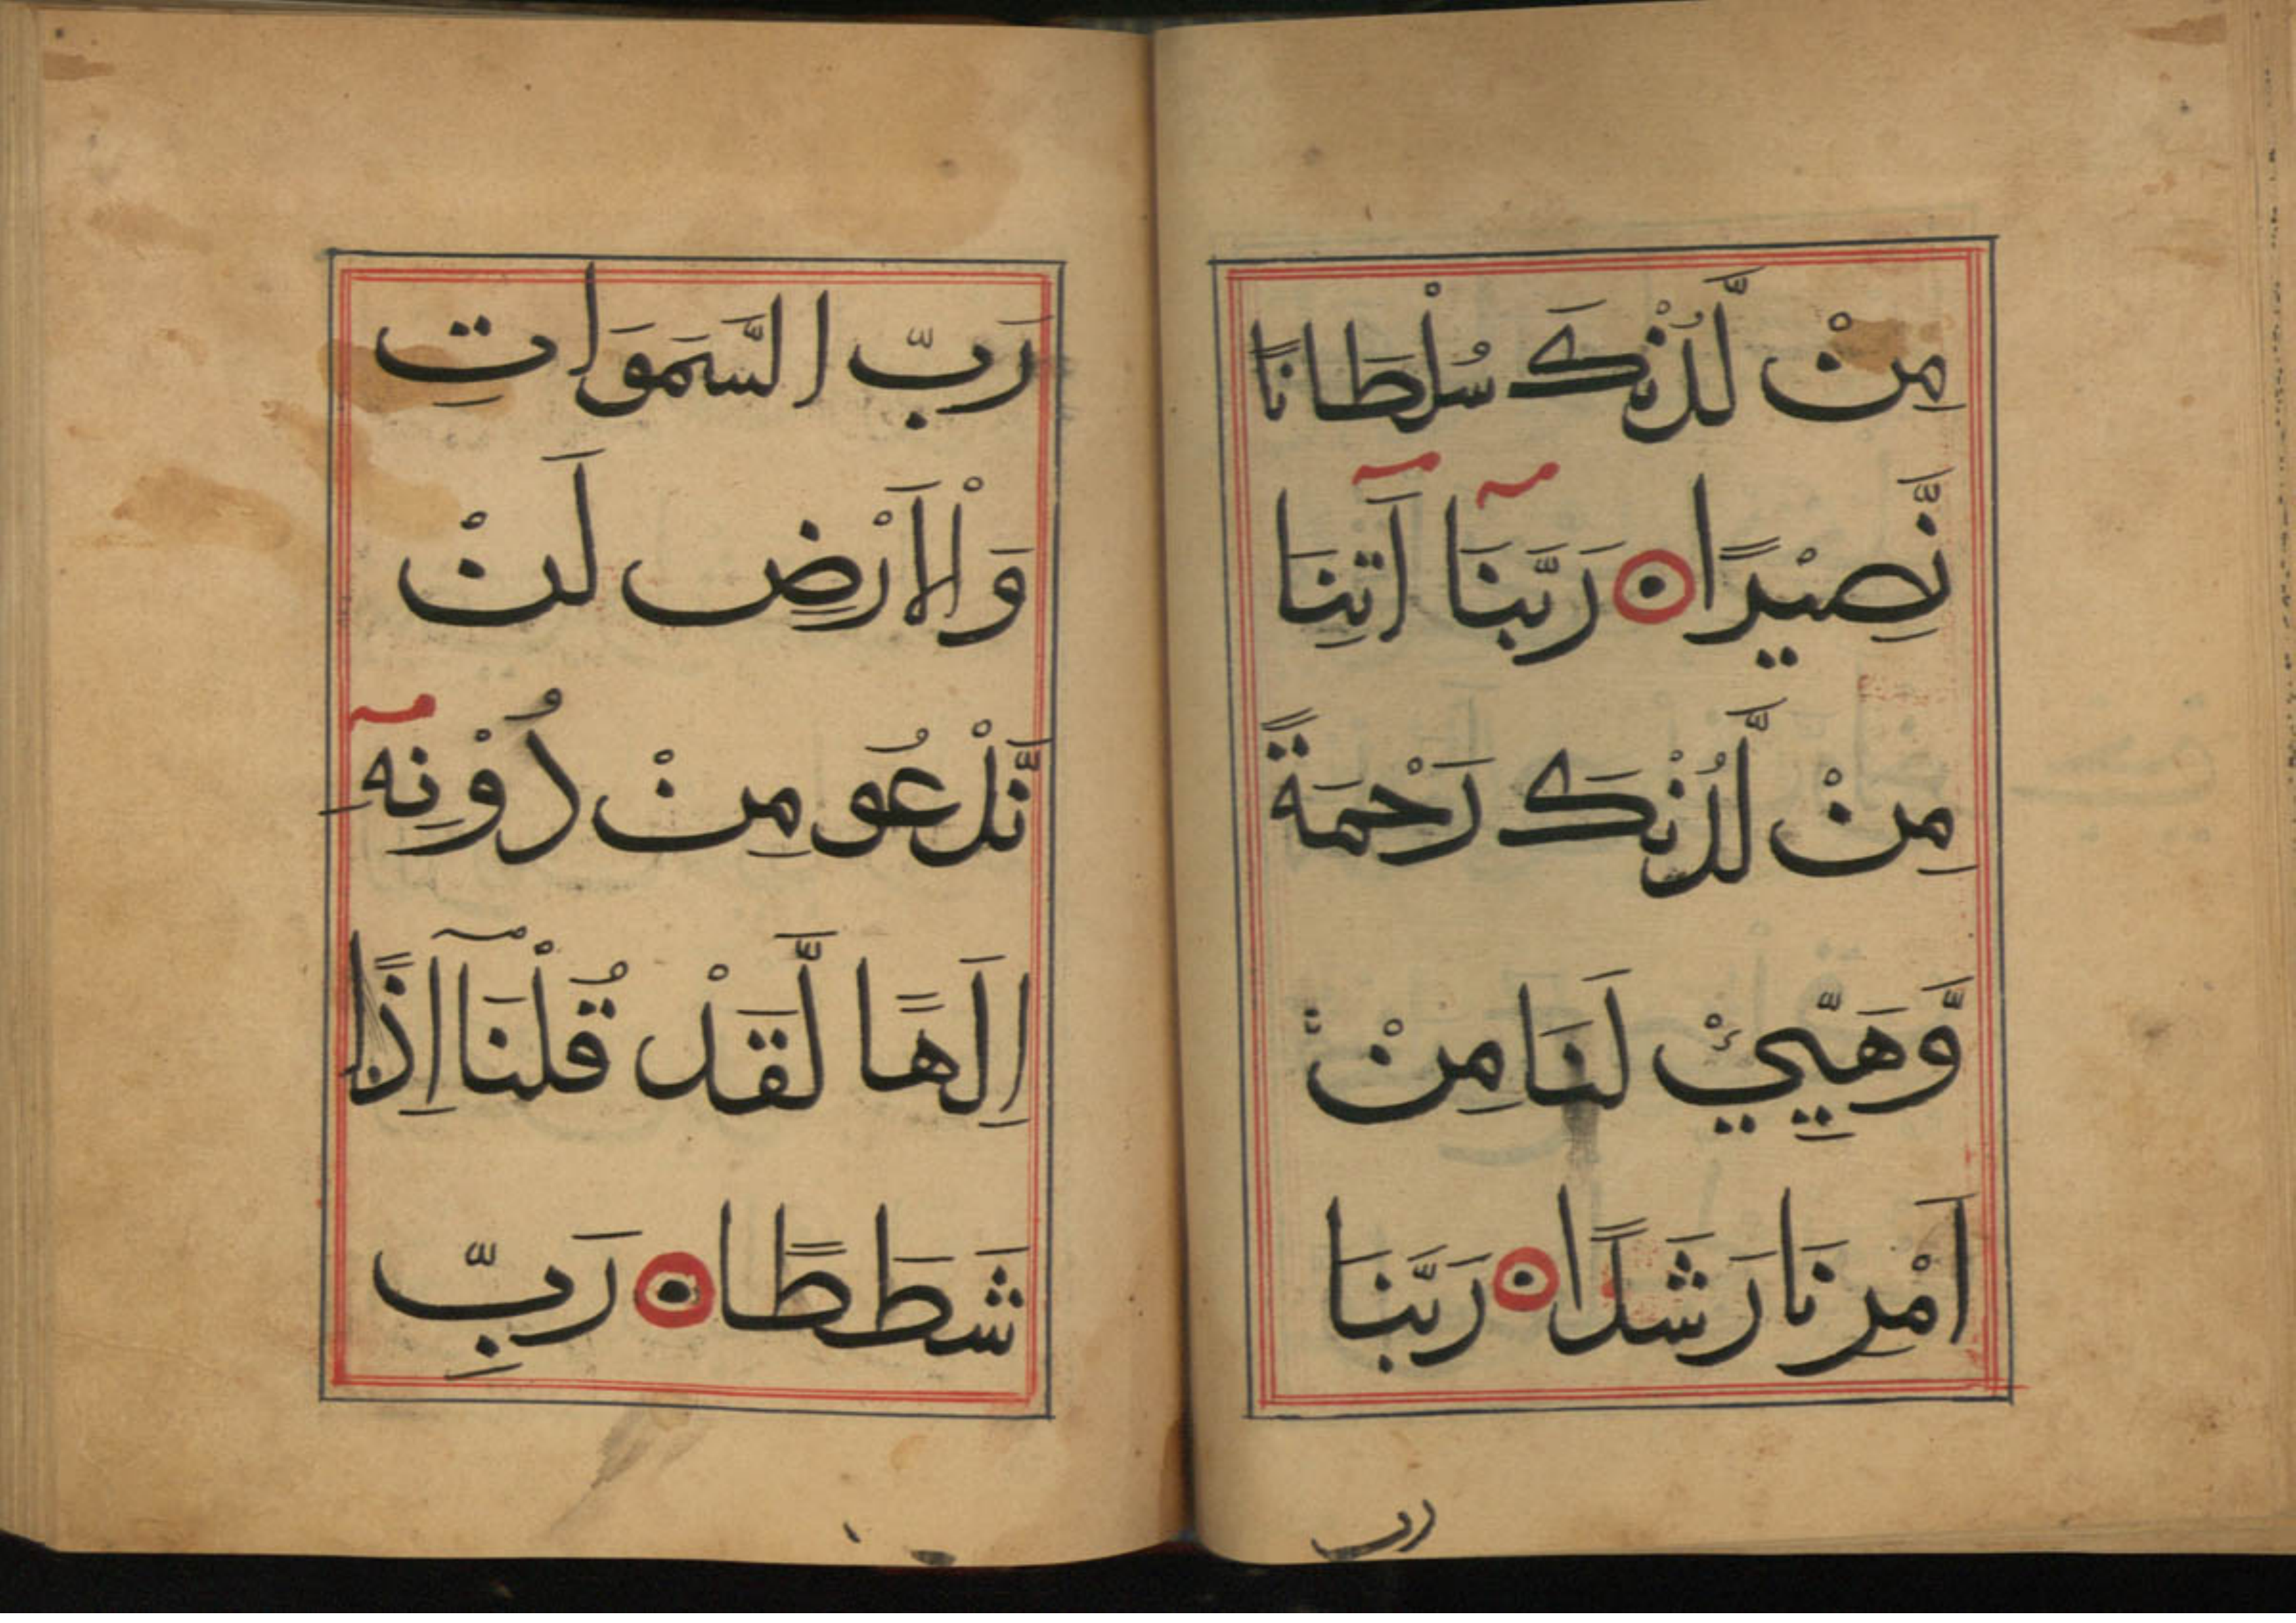 مِنْ لَّدُنْكَ سُلْطَانًا
نَّصِيْرًا رَبَّنَا اٰتِنَا
مِنْ لَّدُنْكَ رَحْمَةً
وَّهَيِّئْ لَنَا مِنْ
اَمْرِنَا رَشَدًا رَبَّنَا
رب
رَبّ السَّمَوَاتِ
وَالْاَرْضِ لَنْ
نَّدْعُو مِنْ دُوْنِهٓ
اِلَهًا لَّقَدْ قُلْنَآ اِذًا
شَطَطًا رَبِّ